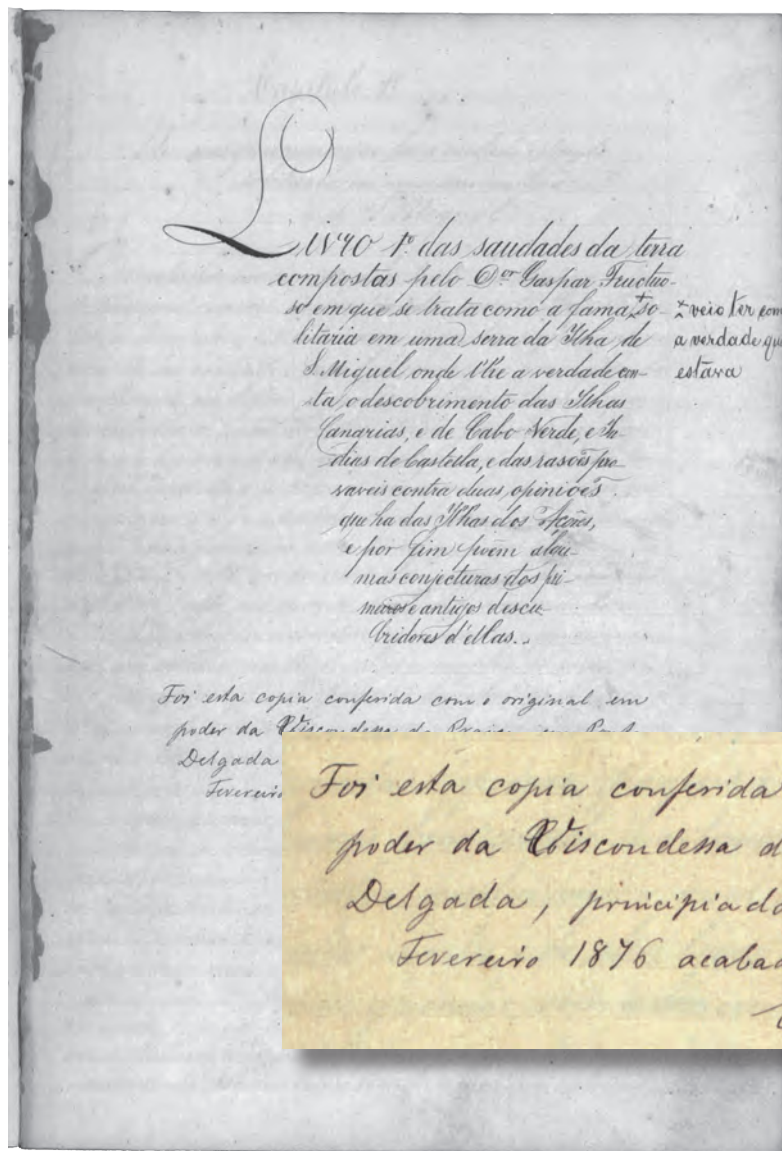 Livro 1º das saudades da terra
compostas pelo Dor Gaspar Fructuo-
so em que se trata como a fama + so-
litaria em uma serra da Ilha de
S. Miguel onde lhe a verdade con-
ta o descobrimento das Ilhas
Canarias, e de Cabo Verde, e In-
dias de Castella, e das rasoẽs pro-
vaveis contra duas, opinioẽs
que ha das Ilhas dos Açores,
e por fim poem algu-
mas conjecturas dos pri-
meiros e antigos descu-
bridores d'ellas.
+ veio ter com
a verdade que
estava
Foi esta copia conferida com o original em
poder da Viscondessa da Praia, em
Delgada
Fevereiro
Foi esta copia conferida
poder da Viscondessa d
Delgada, principiada
Fevereiro 1876 acabad